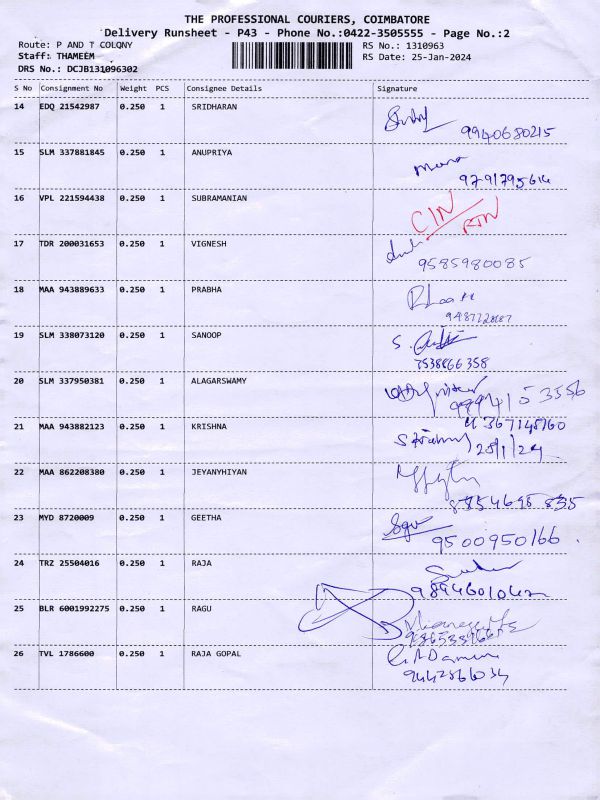 THE PROFESSIONAL COURIERS, COIMBATORE
Delivery Runsheet - P43 - Phone No.:0422-3505555 - Page No.:2
Route: P AND T COLONY RS No.: 1310963
Staff: THAMEEM RS Date: 25-Jan-2024
DRS No.: DCJB131096302
S No Consignment No Weight PCS Consignee Details Signature
14 EDQ 21542987 0.250 1 SRIDHARAN
9940680215
15 SLM 337881845 0.250 1 ANUPRIYA
9791795614
16 VPL 221594438 0.250 1 SUBRAMANIAN
CIN
RTN
17 TDR 200031653 0.250 1 VIGNESH
9585980085
18 MAA 943889633 0.250 1 PRABHA
19 SLM 338073120 0.250 1 SANOOP
S.
7538866358
20 SLM 337950381 0.250 1 ALAGARSWAMY
21 MAA 943882123 0.250 1 KRISHNA
25/1/24
22 MAA 862208380 0.250 1 JEYANYHIYAN
23 MYD 8720009 0.250 1 GEETHA
9500950166.
24 TRZ 25504016 0.250 1 RAJA
9894601042
25 BLR 6001992275 0.250 1 RAGU
26 TVL 1786600 0.250 1 RAJA GOPAL
9442866034